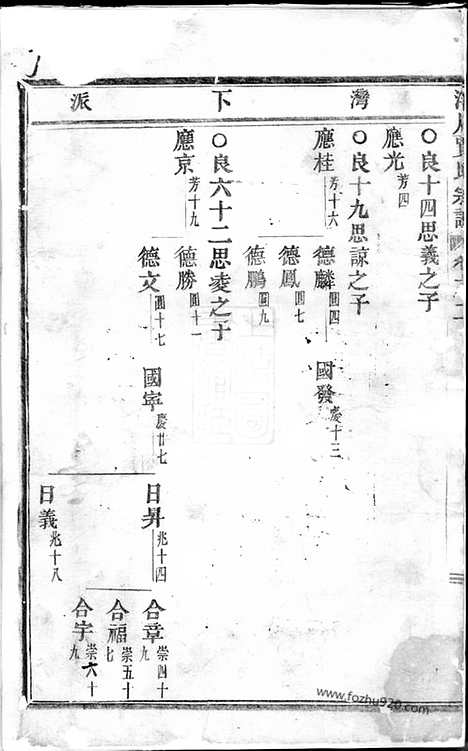 灣下派
○良十四思義之子
應光芳四
○良十九思諒之子
應桂芳十六
德麟圓四
國發慶十三
德鳳圓七
德鵬圓九
○良六十二思凌之子
應京芳十九
德勝圓十一
德文圓十七
國寧慶廿七
日昇兆十四
合章崇四十九
合福崇五十七
合宇崇六十九
日義兆十八
www.fozhu920.com